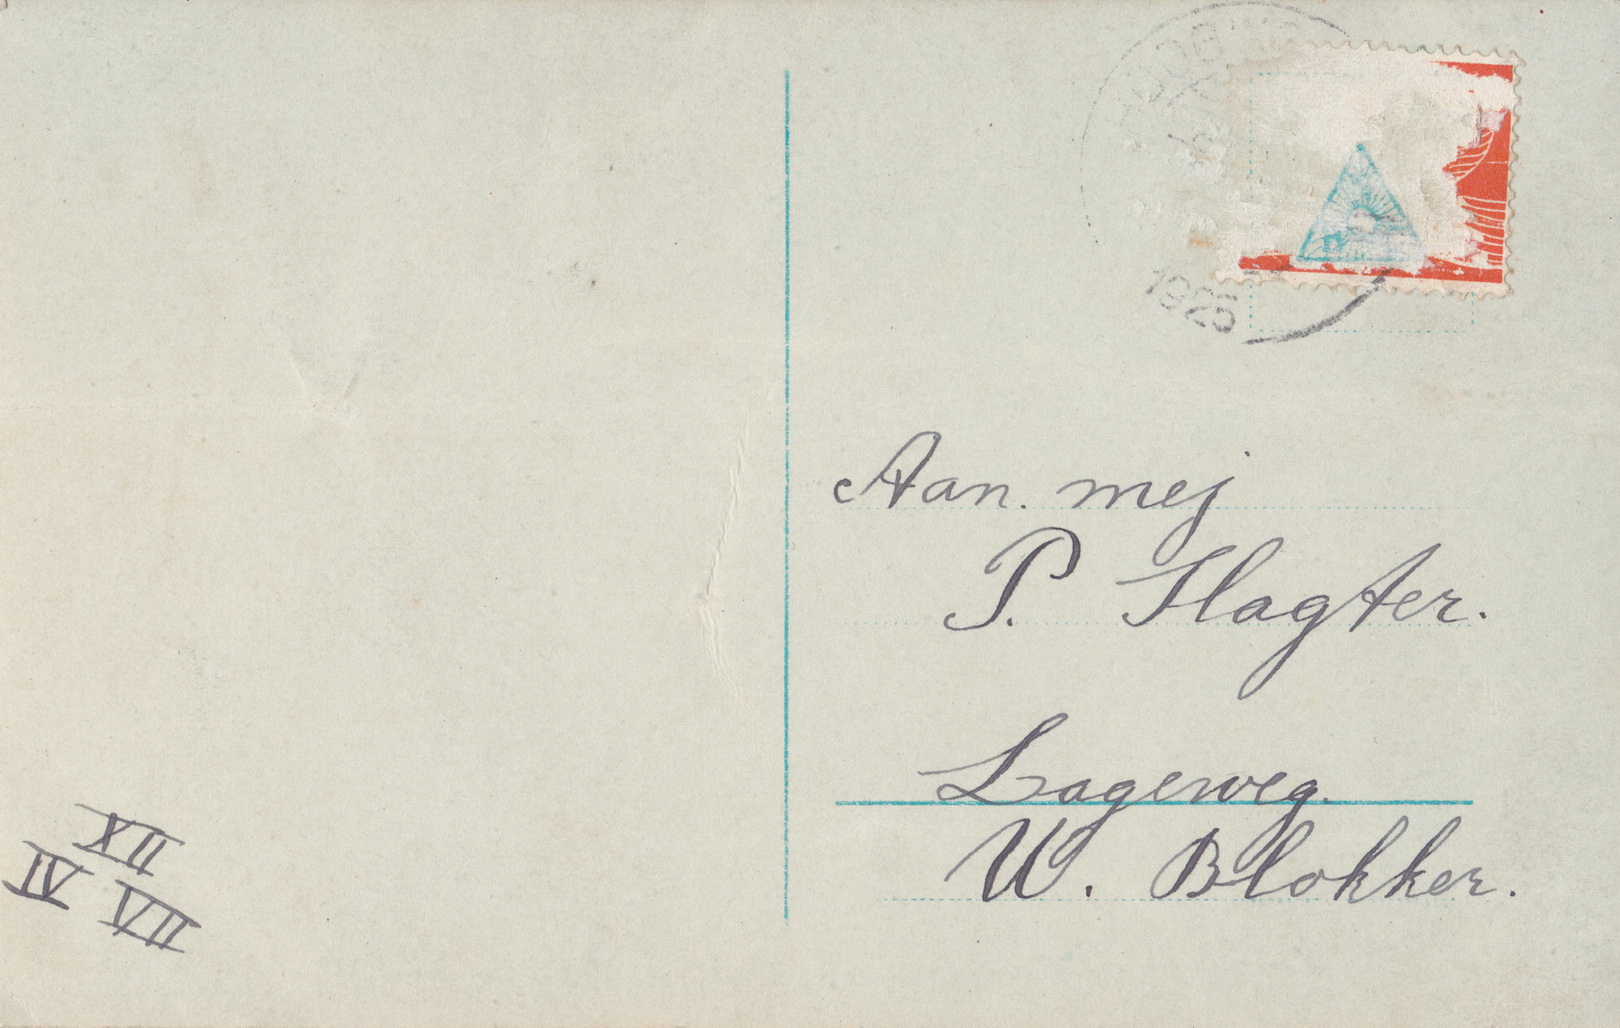 1925
Aan. mej
P. Slagter.
Lageweg.
W. Blokker.
XII
IV VII